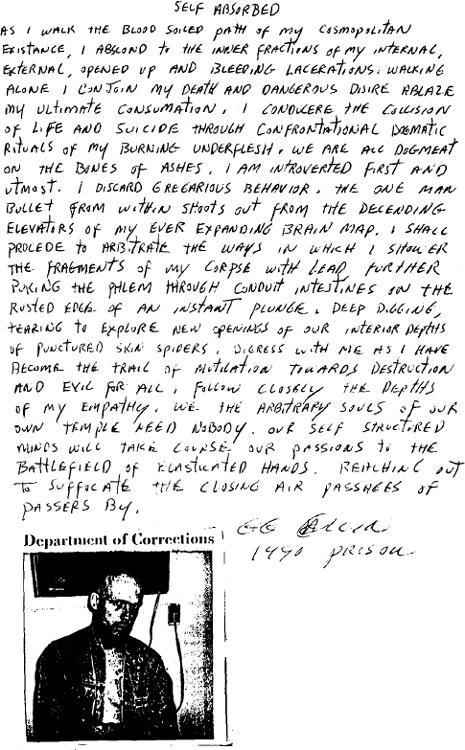 SELF ABSORBED
AS I WALK THE BLOOD SOILED PATH OF MY COSMOPOLITAN
EXISTANCE, I ABSCOND TO THE INNER FRACTIONS OF MY INTERNAL,
EXTERNAL, OPENED UP AND BLEEDING LACERATIONS. WALKING
ALONE I CONJOIN MY DEATH AND DANGEROUS DISIRE ABLAZE
MY ULTIMATE CONSUMATION. I CONDUCERE THE COLLISION
OF LIFE AND SUICIDE THROUGH CONFRONTATIONAL DOGMATIC
RITUALS OF MY BURNING UNDERFLESH. WE ARE ALL DOGMEAT
ON THE BONES OF ASHES. I AM INTROVERTED FIRST AND
UTMOST. I DISCARD GREGARIOUS BEHAVIOR. THE ONE MAN
BULLET FROM WITHIN SHOOTS OUT FROM THE DECENDING
ELEVATORS OF MY EVER EXPANDING BRAIN MAP. I SHALL
PROCEDE TO ARBITRATE THE WAYS IN WHICH I SHOWER
THE FRAGMENTS OF MY CORPSE WITH LEAD, FURTHER
PUKING THE PHLEM THROUGH CONDUIT INTESTINES ON THE
RUSTED EDGE OF AN INSTANT PLUNGE. DEEP DIGGING,
TEARING TO EXPLORE NEW OPENINGS OF OUR INTERIOR DEPTHS
OF PUNCTURED SKIN SPIDERS. DIGRESS WITH ME AS I HAVE
BECOME THE TRAIL OF MUTILATION TOWARDS DESTRUCTION
AND EVIL FOR ALL. FOLLOW CLOSELY THE DEPTHS
OF MY EMPATHY. WE THE ARBITRARY SOULS OF OUR
OWN TEMPLE NEED NOBODY. OUR SELF STRUCTURED
MINDS WILL TAKE COURSE, OUR PASSIONS TO THE
BATTLEFIELD OF ELASTICATED HANDS. REACHING OUT
TO SUFFOCATE THE CLOSING AIR PASSAGES OF
PASSERS BY.
GG Allin
1990 PRISON
Department of Corrections